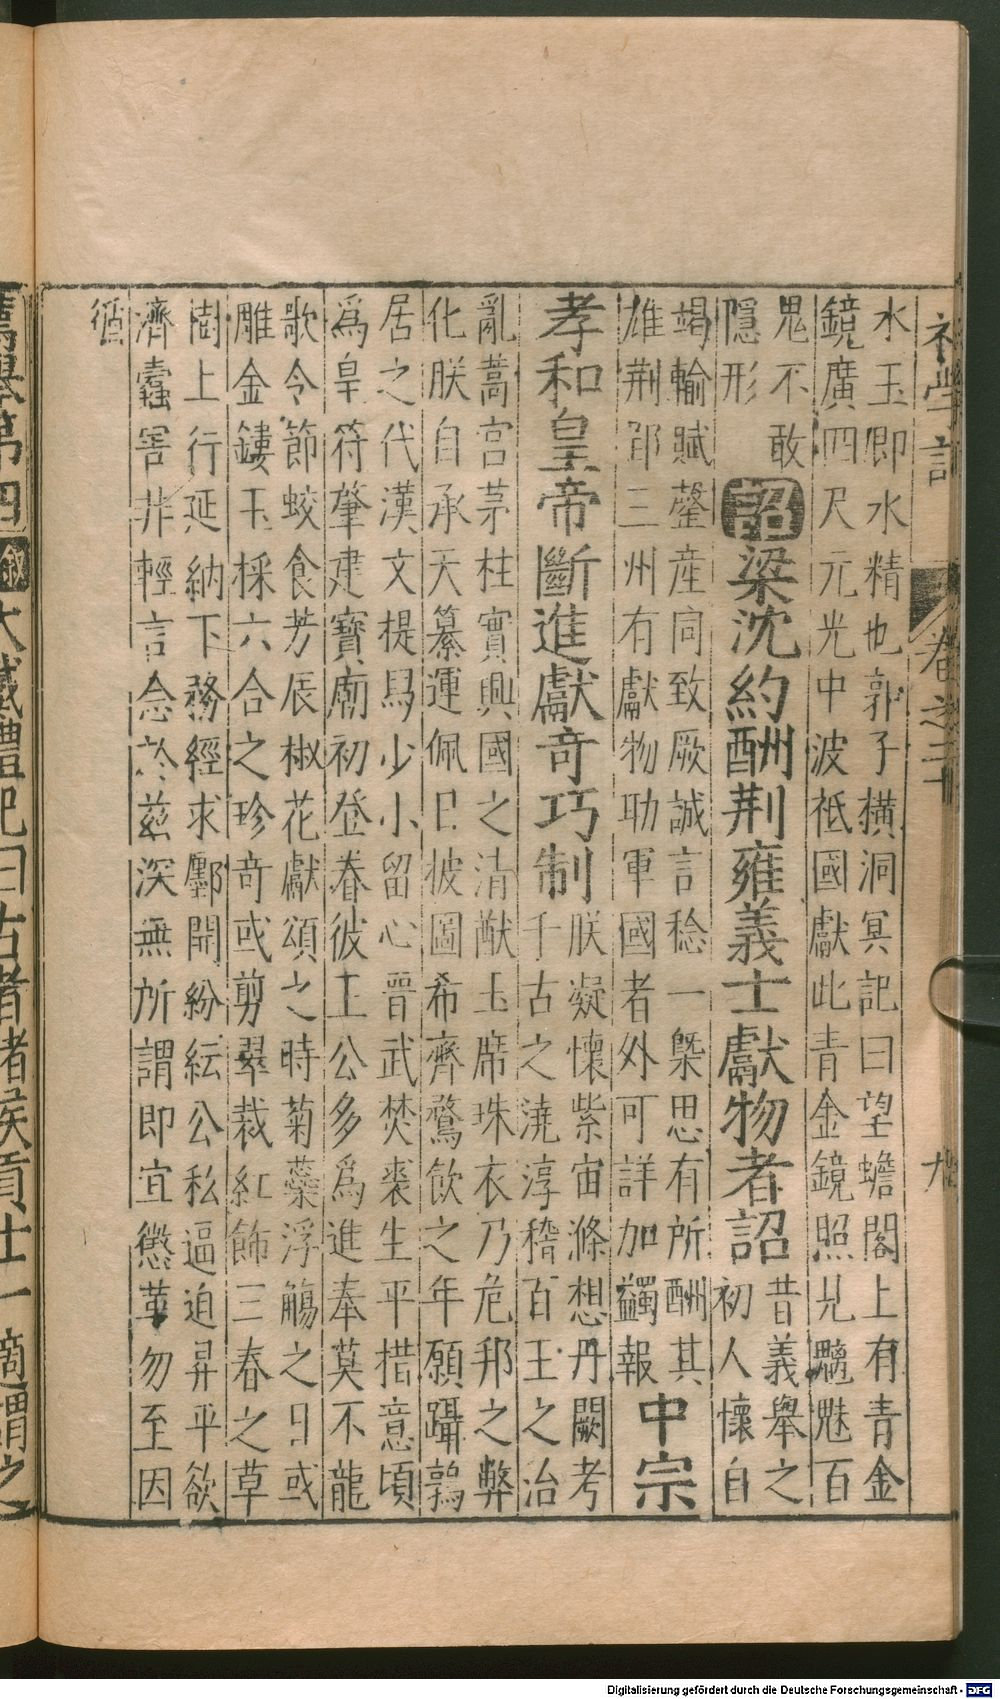 初學記 卷之二十 九
水玉即水精也郭子橫洞冥記曰望蟾閣上有青金
鏡廣四尺元光中波祗國獻此青金鏡照見魑魅百
鬼不敢
隱形
詔梁沈約酬荆雍義士獻物者詔
昔義舉之
初人懷自
竭輸賦罄産同致厥誠言稔一槩思有所酬其
雄荆郢三州有獻物助軍國者外可詳加蠲報
中宗
孝和皇帝斷進獻奇巧制
朕凝懷紫宙滌想丹闕考
千古之澆淳稽百王之治
亂蒿宮茅柱實興國之清猷玉席珠衣乃危邦之弊
化朕自承天纂運佩日披圖希齊鶩飲之年願躡鶉
居之代漢文提舄少小留心晉武焚裘生平措意頃
爲皐符肇建寶廟初登眷彼王公多爲進奉莫不龍
歌令節蛟食芳辰椒花獻頌之時菊蘂浮觴之日或
雕金鏤玉採六合之珍奇或剪翠裁紅飾三春之草
樹上行延納下務經求酆開紛紜公私逼迫昇平欲
濟蠹害非輕言念於兹深無所謂即宜懲革勿至因
循
薦舉第四 叙大戴禮記曰古者諸侯貢士一適謂之
Digitalisierung gefördert durch die Deutsche Forschungsgemeinschaft - DFG